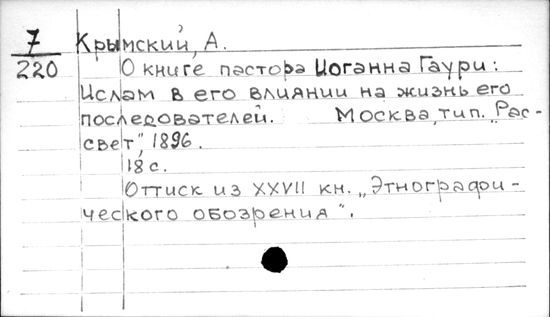 7 Крымский, А.
220 О книге пастора Иоганна Гаури:
Ислам в его влиянии на жизнь его
последователей. Москва, тип. „Рас-
свет”, 1896.
18 с.
Оттиск из XXVII кн. „Этнографи-
ческого обозрения”.